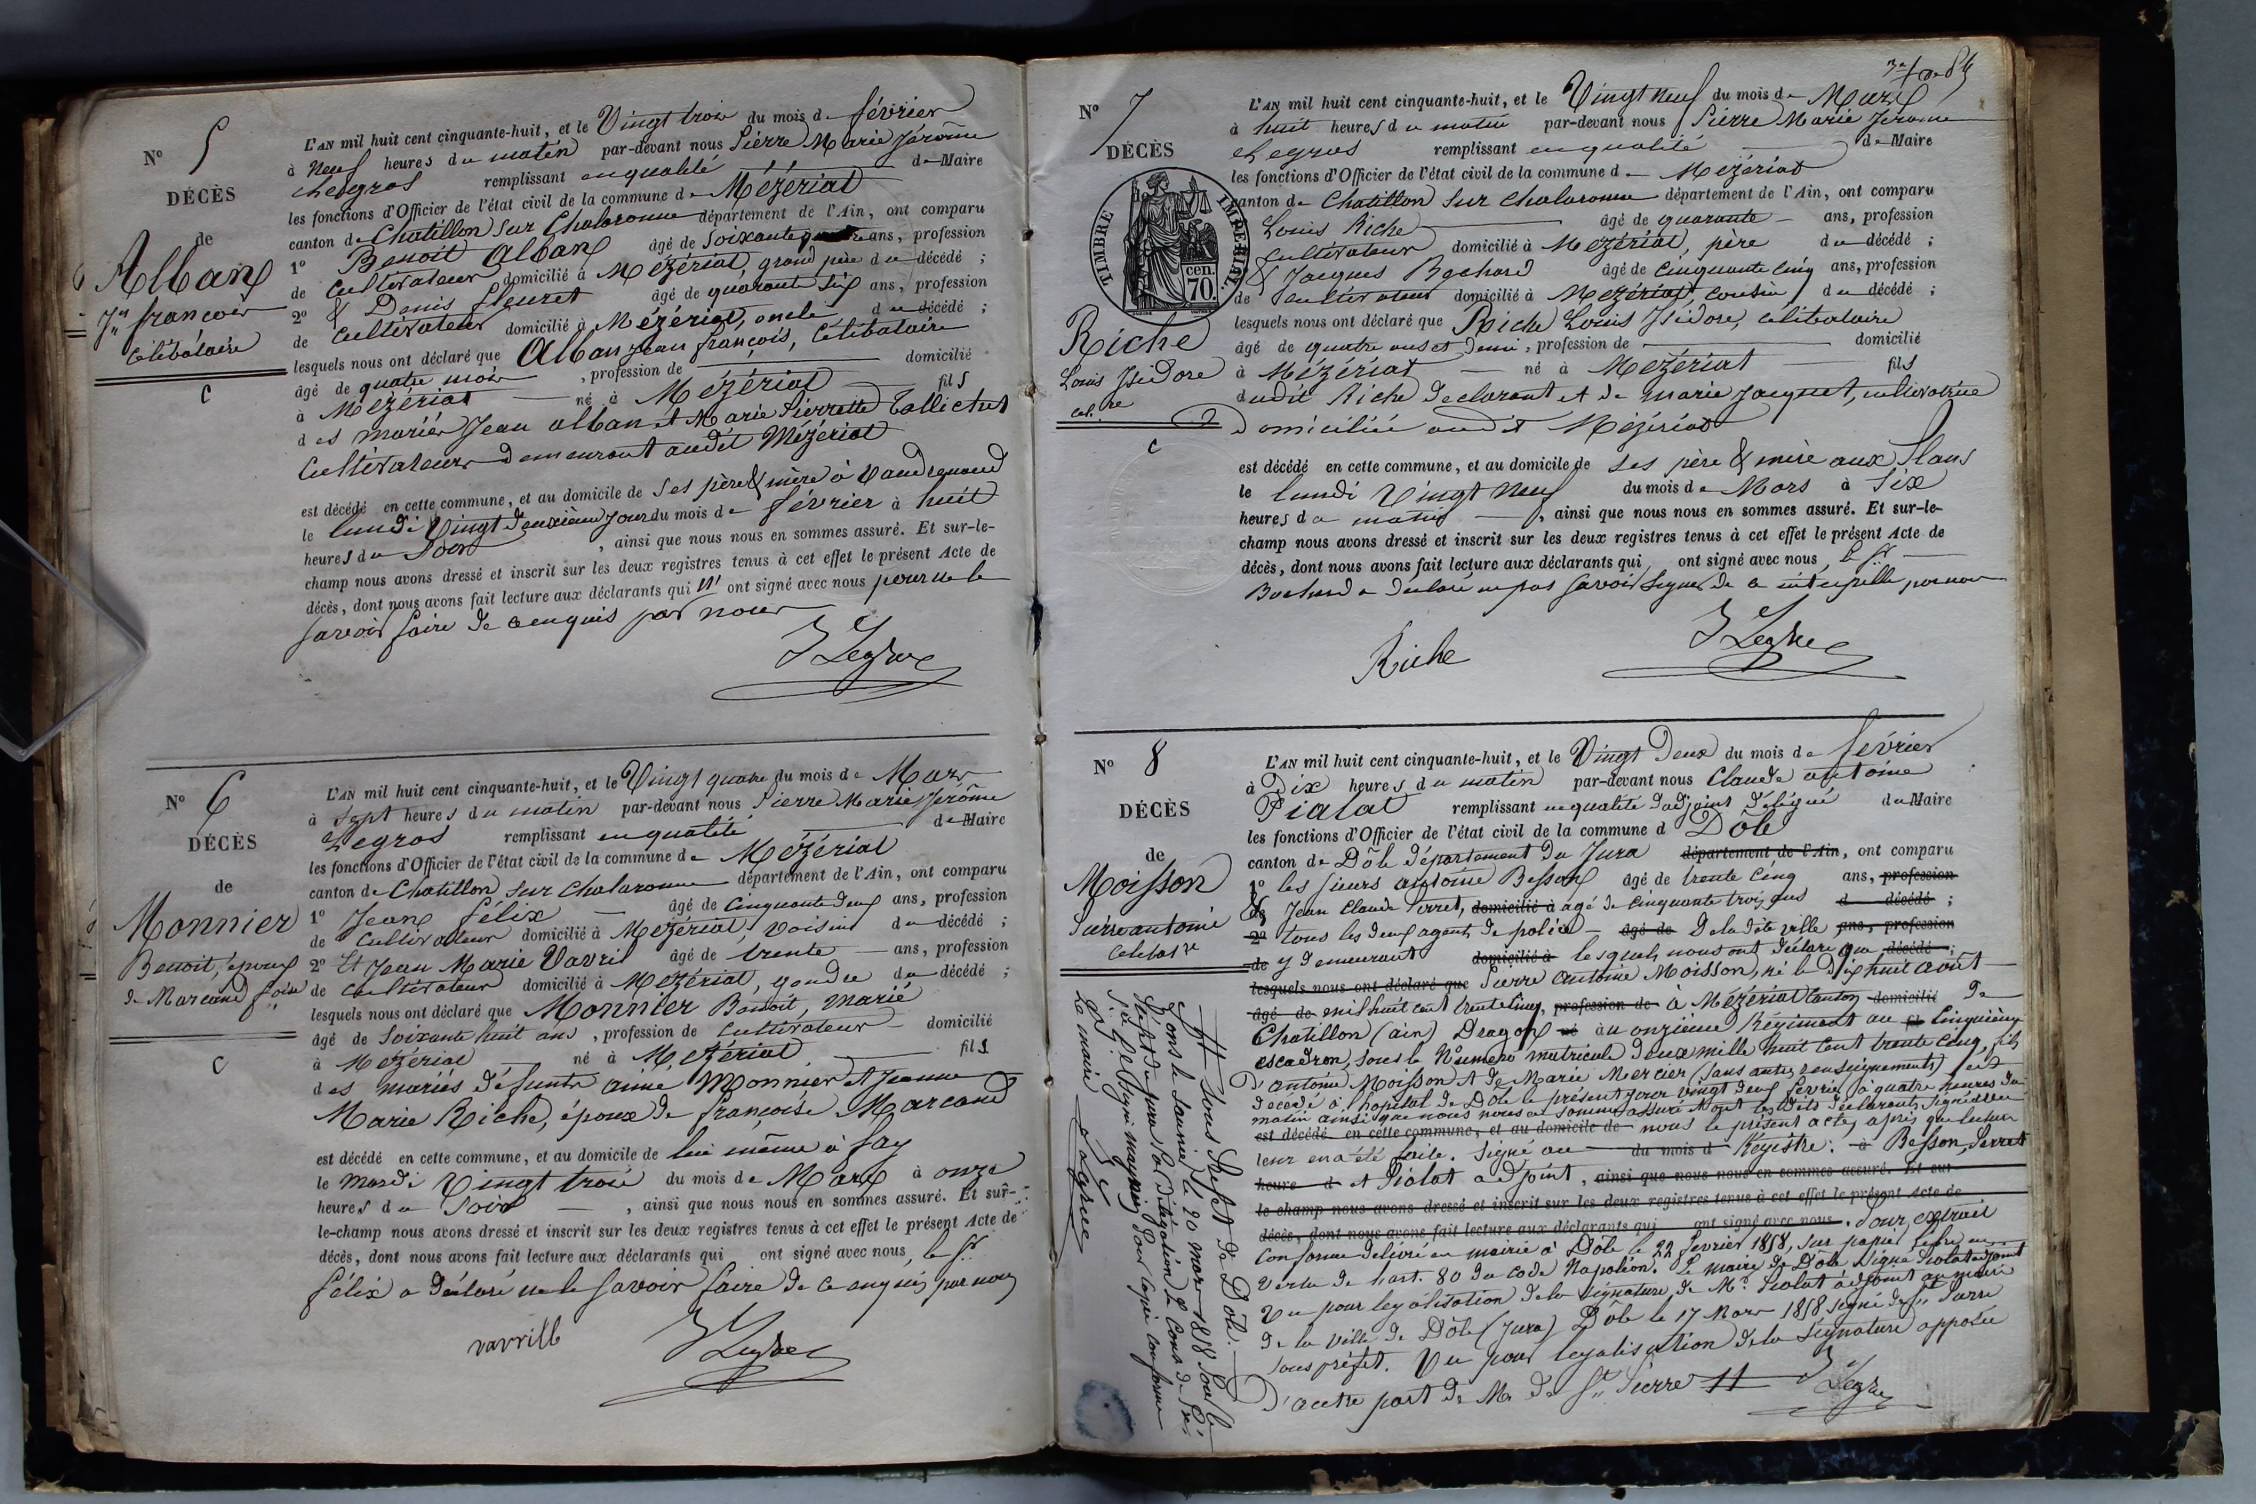 N° 5
DÉCÈS
de
Alban
Jn françois
célibataire
C
L'AN mil huit cent cinquante-huit, et le Vingt trois du mois de février
à Neuf heures du matin par-devant nous Pierre Marie Jérôme
Legros remplissant en qualité de Maire
les fonctions d'Officier de l'état civil de la commune de Mézériat
canton de Chatillon sur Chalaronne département de l'Ain, ont comparu
1° Benoit Alban âgé de soixante ans, profession
de cultivateur domicilié à Mézériat, grand père du décédé ;
2° & Denis fleuret âgé de quarante six ans, profession
de cultivateur domicilié à Mézériat, oncle du décédé ;
lesquels nous ont déclaré que Alban jean françois, Célibataire
âgé de quatre mois , profession de domicilié
à Mézériat né à Mézériat fils
des mariés Jean alban et Marie Pierrette
Cultivateurs demeurant audit Mézériat
est décédé en cette commune, et au domicile de ses père & mère à Vaudrenand
le lundi Vingt deuxième jour du mois de février à huit
heures du Soir , ainsi que nous nous en sommes assuré. Et sur-le-
champ nous avons dressé et inscrit sur les deux registres tenus à cet effet le présent Acte de
décès, dont nous avons fait lecture aux déclarants qui n' ont signé avec nous pour ne le
savoir faire de ce enquis par nous
J Legros
N° 6
DÉCÈS
de
Monnier
Benoit, époux
de Marcand foise
C
L'AN mil huit cent cinquante-huit, et le Vingt quatre du mois de Mars
à Sept heures du matin par-devant nous Pierre Marie Jérôme
Legros remplissant en qualité de Maire
les fonctions d'Officier de l'état civil de la commune de Mézériat
canton de Chatillon sur Chalaronne département de l'Ain, ont comparu
1° Jean Félix âgé de cinquante deux ans, profession
de cultivateur domicilié à Mézériat, voisin du décédé ;
2° Et Jean Marie Vavril âgé de trente ans, profession
de cultivateur domicilié à Mézériat, gendre du décédé ;
lesquels nous ont déclaré que Monnier Benoit, marié
âgé de Soixante huit ans , profession de cultivateur domicilié
à Mézériat né à Mézériat fils
des mariés défunts aimé Monnier et Jeanne
Marie Riche, époux de françoise Marcand
est décédé en cette commune, et au domicile de lui même à fay
le Mardi Vingt trois du mois de Mars à onze
heures du Soir , ainsi que nous nous en sommes assuré. Et sur-
le-champ nous avons dressé et inscrit sur les deux registres tenus à cet effet le présent Acte de
décès, dont nous avons fait lecture aux déclarants qui ont signé avec nous, le Sr
félix a déclaré ne le savoir faire de ce enquis par nous
vavrill
J Legros
N° 7
DÉCÈS
TIMBRE IMPÉRIAL
cen.
70.
Riche
Louis Isidore
cel.re
C
L'AN mil huit cent cinquante-huit, et le Vingt neuf du mois de Mars
à huit heures du matin par-devant nous Pierre Marie Jérome
Legros remplissant en qualité de Maire
les fonctions d'Officier de l'état civil de la commune de Mézériat
canton de Chatillon sur Chalaronne département de l'Ain, ont comparu
Louis Riche âgé de quarante ans, profession
cultivateur domicilié à Mézériat, père du décédé ;
& Jacques Bochard âgé de cinquante cinq ans, profession
de cultivateur domicilié à Mézériat, cousin du décédé ;
lesquels nous ont déclaré que Riche Louis Isidore, célibataire
âgé de quatre ans et demi , profession de domicilié
à Mézériat né à Mézériat fils
dudit Riche déclarant et de marie Jacquet, cultivatrice
Domiciliée audit Mézériat
est décédé en cette commune, et au domicile de ses père & mère aux Plans
le lundi Vingt Neuf du mois de Mars à Six
heures du matin , ainsi que nous nous en sommes assuré. Et sur-le-
champ nous avons dressé et inscrit sur les deux registres tenus à cet effet le présent Acte de
décès, dont nous avons fait lecture aux déclarants qui ont signé avec nous, le Sr
Bochard a déclaré ne pas savoir signer de ce interpellé par nous
Riche
J Legros
N° 8
DÉCÈS
de
Moisson
Pierre antoine
Celibatre
L'AN mil huit cent cinquante-huit, et le Vingt Deux du mois de février
à Dix heures du matin par-devant nous Claude antoine
Pialat remplissant en qualité d'adjoint délégué du Maire
les fonctions d'Officier de l'état civil de la commune d Dôle
canton de Dôle département du Jura département de l'Ain, ont comparu
1° les sieurs antoine Besson âgé de trente cinq ans, profession
de & Jean Claude Perret, domicilié à âgé de cinquante trois ans d décédé ;
2° tous les deux agents de police âgé de De la dite ville ans, profession
de y demeurant domicilié à lesquels nous ont déclaré que décédé ;
lesquels nous ont déclaré que Pierre antoine Moisson, né le dix huit août
âgé de mil huit cent trente cinq, profession de à Mézériat Canton domicilié De
Chatillon (ain) Dragon né au onzième Régiment au fil Cinquième
escadron, sous le Numéro matricule deux mille huit cent trente cinq, fils
D'antoine Moisson et de Marie Mercier (sans autres renseignements) est
décédé à l'hopital de Dôle le présent jour vingt deux février à quatre heures du
matin ainsi que nous nous en sommes assuré dont les dits déclarants signé avec
est décédé en cette commune, et au domicile de nous le présent acte, après que lecture
leur en a été faite. Signé au du mois d Registre: à Besson, Perret
heure d et Pialat adjoint, ainsi que nous nous en sommes assuré. Et sur
le champ nous avons dressé et inscrit sur les deux registres tenus à cet effet le présent Acte de
décès, dont nous avons fait lecture aux déclarants qui ont signé avec nous. Pour extrait
Conforme délivré en mairie à Dôle le 22 février 1858, sur papier libre en
Vertu de l'art. 80 du code Napoléon. Le maire de Dôle Signé Pialat adjoint
Vu pour legalisation de la signature de Mr Pialat adjoint au maire
de la ville de Dôle (Jura) Dôle le 17 Mars 1858 signé de St Pierre
Sous préfet. Vu pour legalisation de la signature apposée
D'autre part de M. de St Pierre #
J Legros
# Sous Prefet de Dôle.
Lons le Saunier le 20 mars 1858 Pour le
Préfet du Jura Par Délégation le Cons de Pré
Pour copie conforme
Le maire